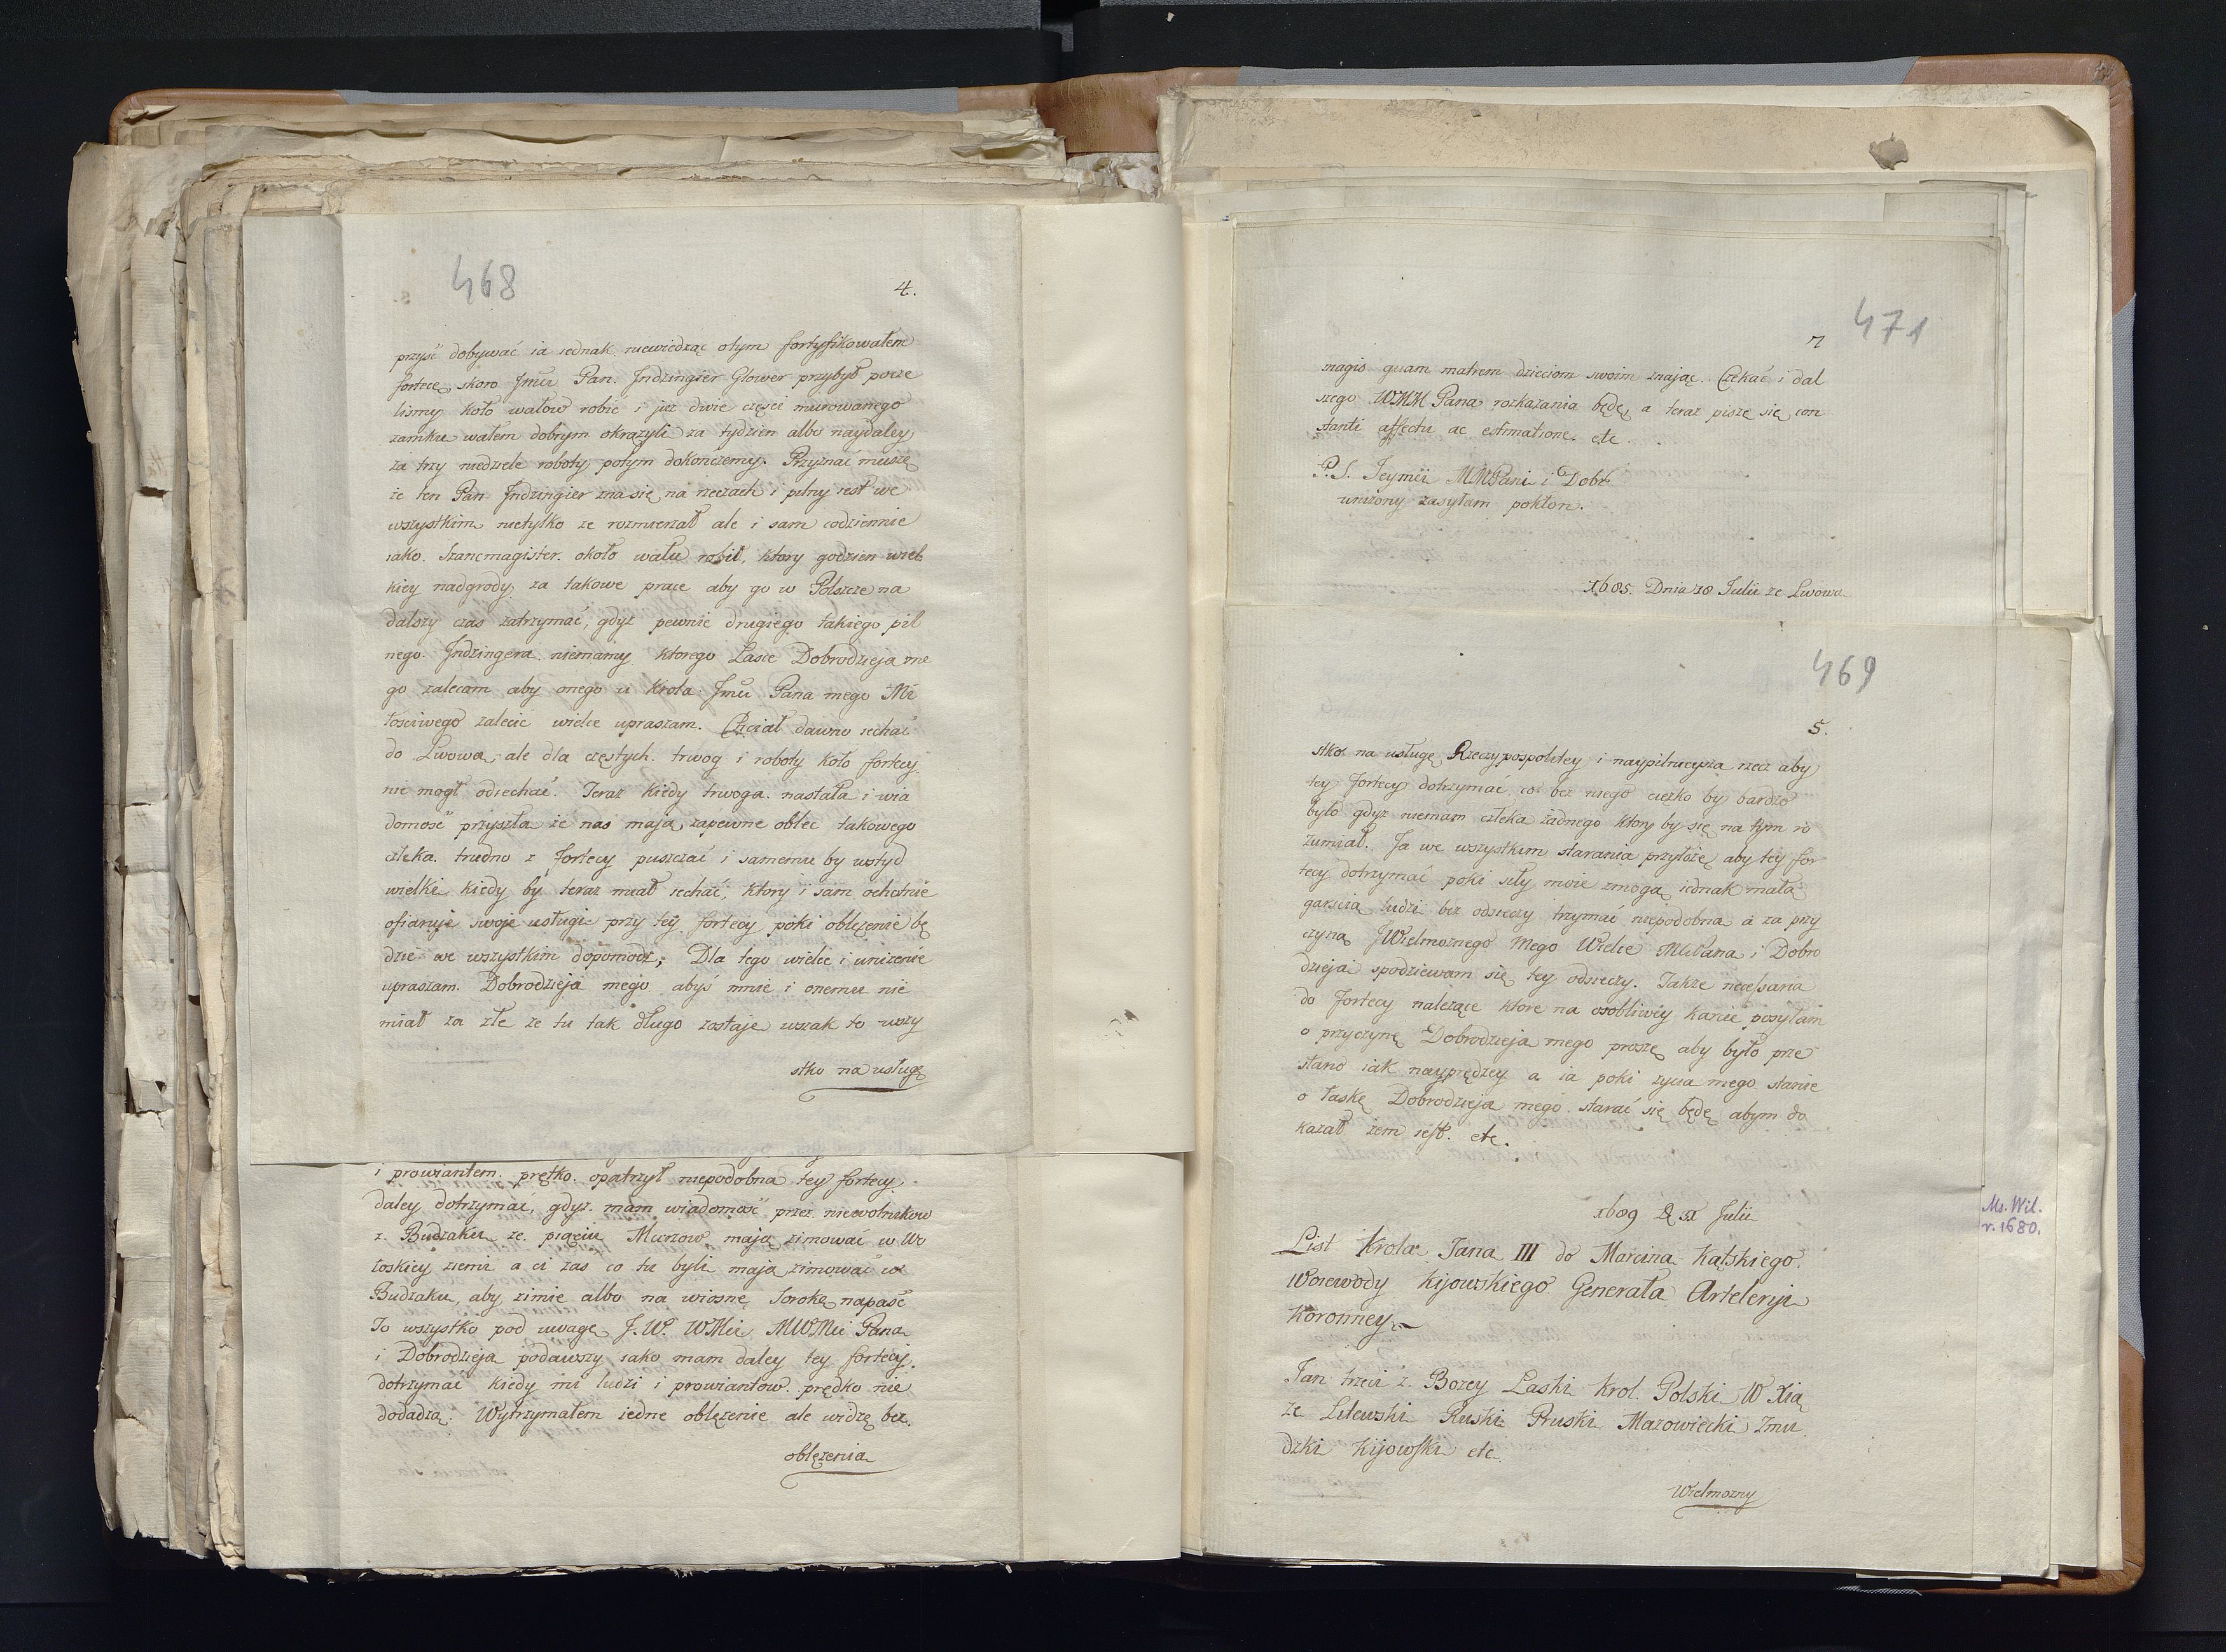 468
4.
przyść dobywać ia iednak niewiedząc otym fortyfikowałem
fortecę, skoro Jmći Pan Indzingier Glower przybył poczę
liśmy koło wałow robić i już dwie części murowanego
zamku wałem dobrym okrążyli za tydzien albo naydaley
za trzy niedziele roboty potym dokończemy. Przyznać muszę
że ten Pan Indzingier zna się na rzeczach i pilny iest we
wszystkim nietylko ze rozmierzał ale i sam codziennie
iako Szancmagister około wału robił, ktory godzien wiel
kiey nadgrody za takowe prace aby go w Polszcze na
dalszy czas zatrzymać, gdyż pewnie drugiego takiego pil
nego Indzingera niemamy ktorego Łasce Dobrodzieja me
go zalecam aby onego u Krola Jmći Pana mego Mi
łosciwego zalecić wielce upraszam. Chciał dawno iechać
do Lwowa ale dla częstych trwog i roboty koło fortecy
nie mogł odiechać. Teraz kiedy trwoga nastała i wia
domość przyszła że nas mają zapewne oblec takowego
człeka trudno z fortecy puszczać i samemu by wstyd
wielki kiedy by teraz miał iechać, ktory i sam ochotnie
ofiaruje swoje usługi przy tey fortecy poki oblężenie bę
dzie we wszystkim dopomodz, Dla tego wielce i uniżenie
upraszam Dobrodzieja mego abyś mnie i onemu nie
miał za złe ze tu tak długo zostaje wszak to wszy
stko na usługę
i prowiantem prętko opatrzył niepodobna tey fortecy
daley dotrzymać, gdyż mam wiadomość przez niewolnikow
z Budzaku ze pięciu Murzow mają zimować w Wo
łoskiey ziemi a ci zas co tu byli maja zimować w
Budzaku, aby zimie albo na wiosnę Sorokę napaść
To wszystko pod uwagę J.W. WMci MWMci Pana
i Dobrodzieja podawszy iako mam daley tey fortecy
dotrzymać kiedy mi ludzi i prowiantow prędko nie
dodadzą. Wytrzymałem iedne oblężenie ale widzę bez
oblężenia
471
7
magis quam matrem dzieciom swoim znając. Czekać i dal
szego WMM Pana rozkazania będę, a teraz piszę się con
stanti affectu ac estimatione. etc.
P.S. Jeymći MMPani i Dobr.
uniżony zasyłam pokłon.
1685. Dnia 18 Julii ze Lwowa
469
5.
stko na usługę Rzeczypospolitey i naypilnieysza rzecz aby
tey fortecy dotrzymać co bez niego ciężko by bardzo
było gdyż niemam człeka żadnego ktory by się na tym ro
zumiał. Ja we wszystkim starania przyłożę aby tey for
tecy dotrzymać poki siły moie zmogą iednak małą
garscią ludzi bez odsieczy trzymać niepodobna a za przy
czyną JWielmożnego Mego Wielce MMPana i Dobro
dzieja spodziewam się tey odsieczy. Także necessaria
do fortecy należące ktore na osobliwey karcie posyłam
o przyczynę Dobrodzieja mego proszę aby było prze
słano iak nayprędzey a ia poki życia mego stanie
o łaskę Dobrodzieja mego starać się będę abym do
kazał żem iest. etc.
1689 D 31 Julii
Ms. Wil.
r. 1680.
List Krola Jana III do Marcina Kątskiego
Woiewody Kijowskiego Generała Artelerji
Koronney
Jan trzeci z Bozey Łaski Krol Polski W Xią
że Litewski Ruski Pruski Mazowiecki Zmu
dzki Kijowski etc.
Wielmożny